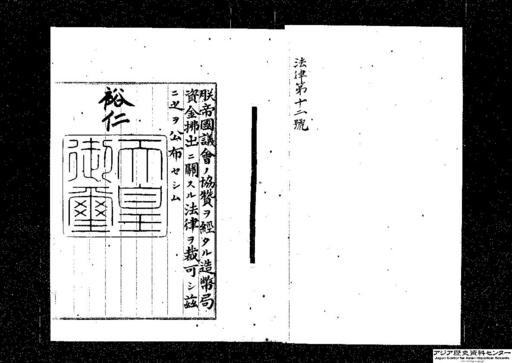 法律第十二號
朕帝國議會ノ協贊ヲ經タル造幣局
資金拂出ニ關スル法律ヲ裁可シ茲
ニ之ヲ公布セシム
裕仁
天皇
御璽
アジア歴史資料センター
Japan Center for Asian Historical Records